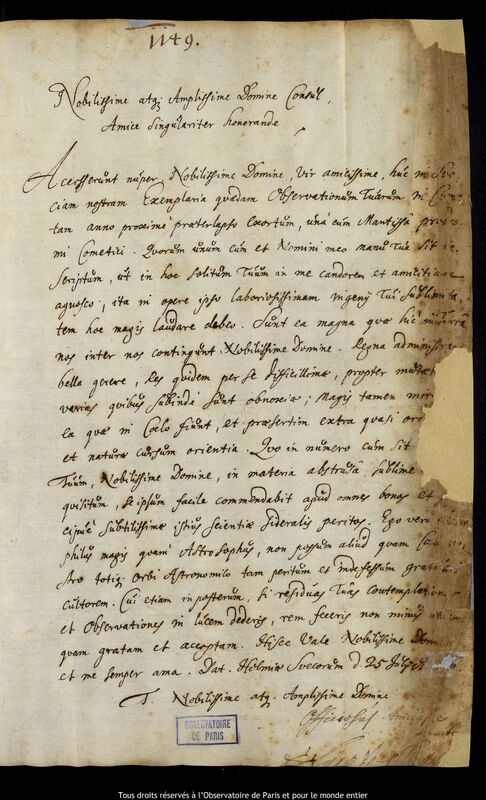 1149.
Nobilissime atq; Amplissime Domine Consul,
Amice singulariter honorande
Accesserunt nuper, Nobilissime Domine, Vir amicissime, huc in Sve
ciam nostram Exemplaria quædam Observationum Tuarum in Come
tam anno proximè præterlapso exortum, unà cum Mantissa
mi Cometici. Quorum unum cum et Nomini meo manu Tua sit in
scriptum, ut in hoc solitum Tuum in me candorem et amicitiam
agnosco, ita in opere ipso laboriosissimam ingenij Tui sublimita
tem hoc magis laudare debeo. Sunt ea magna quæ hic in Terra
nos inter nos contingunt Nobilissime Domine. Regna administra
bella gerere, res quidem per se difficillimæ, propter
varias quibus subinde sunt obnoxia; Magis tamen
la quæ in Coelo fiunt, et præsertim extra quasi
et naturæ cursum orientia. Quo in numero cum sit
Tuum, Nobilissime Domine, in materia abstrusa, sublime
quisitum, se ipsum facile commendabit apud omnes bonos et
cipuè subtilissimæ istius scientiæ sideralis peritos. Ego vero
philus magis quam Astrosophus, non possum aliud quam
stro totiq; orbi Astronomico tam peritum et indefessum
cultorem. Cui etiam in posterum, si residuas Tuas contemplationes
et Observationes in lucem dederis, rem feceris non minus
quam gratam et acceptam. Hisce Vale Nobilissime
et me semper ama. Dat. Holmiæ Svecorum d. 25 July
T. Nobilissime atq; Amplissime Domine
Officiosus
OBSERVATOIRE
DE PARIS
Tous droits réservés à l'Observatoire de Paris et pour le monde entier